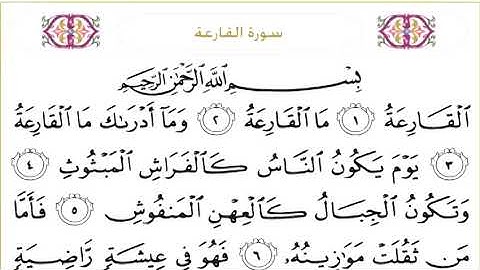 سورة القارعة
بِسْمِ اللَّهِ الرَّحْمَٰنِ الرَّحِيمِ
الْقَارِعَةُ ١ مَا الْقَارِعَةُ ٢ وَمَا أَدْرَاكَ مَا الْقَارِعَةُ
٣ يَوْمَ يَكُونُ النَّاسُ كَالْفَرَاشِ الْمَبْثُوثِ ٤
وَتَكُونُ الْجِبَالُ كَالْعِهْنِ الْمَنْفُوشِ ٥ فَأَمَّا
مَن ثَقُلَتْ مَوَازِينُهُ ٦ فَهُوَ فِي عِيشَةٍ رَّاضِيَةٍ